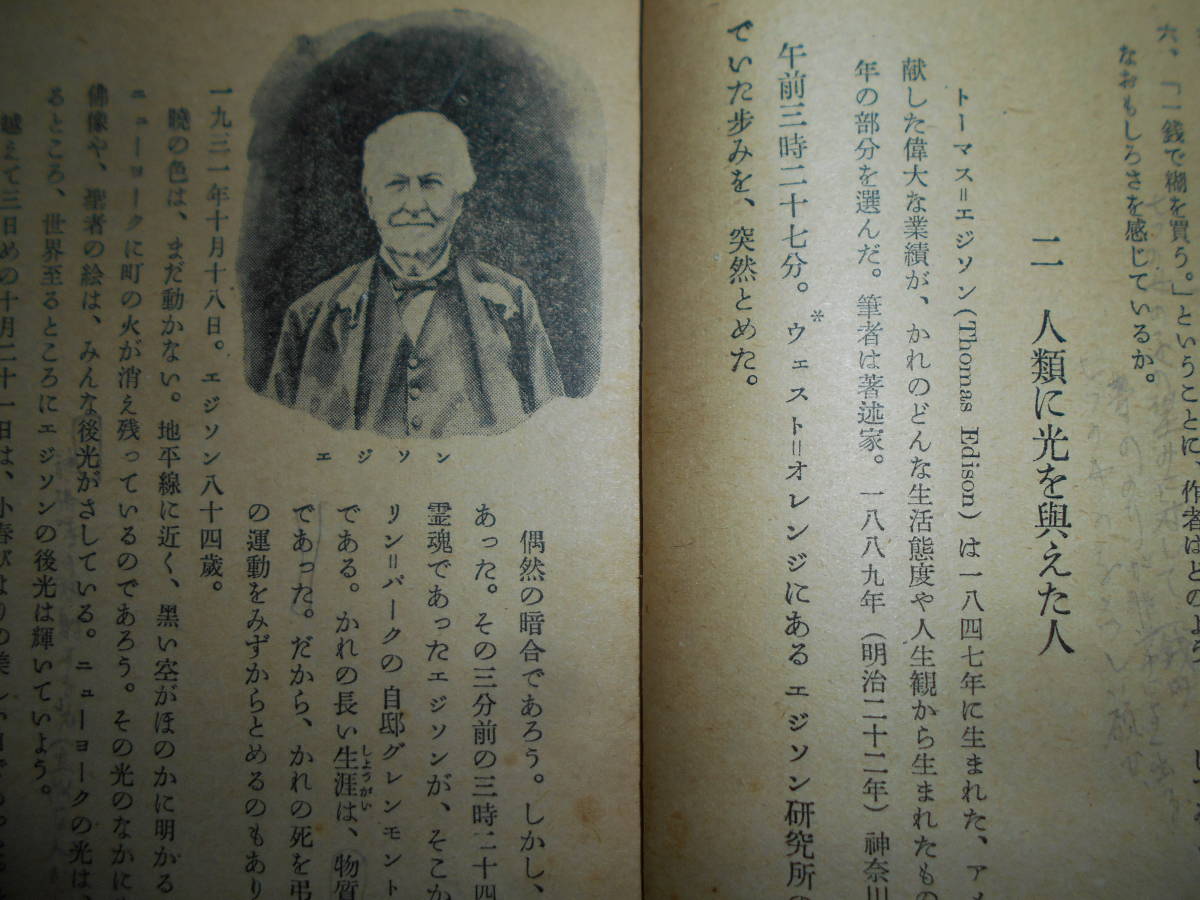 六、「一銭で糊を買う。」ということに、作者はどのよう
なおもしろさを感じているか。
二　人類に光を與えた人
トーマス＝エジソン(Thomas Edison)は一八四七年に生まれた、アメ
献した偉大な業績が、かれのどんな生活態度や人生観から生まれたもの
年の部分を選んだ。筆者は著述家。一八八九年（明治二十二年）神奈川
午前三時二十七分。ウェスト＝オレンジにあるエジソン研究所の
*
でいた歩みを、突然とめた。
エジソン
偶然の暗合であろう。しかし、
あった。その三分前の三時二十四
霊魂であったエジソンが、そこか
リン＝パークの自邸グレンモント
である。かれの長い生涯は、物質
しょうがい
であった。だから、かれの死を弔
の運動をみずからとめるのもあり
一九三一年十月十八日。エジソン八十四歳。
曉の色は、まだ動かない。地平線に近く、黒い空がほのかに明かる
ニューヨークに町の火が消え残っているのであろう。その光のなかに
佛像や、聖者の絵は、みんな後光がさしている。ニューヨークの光は
るところ、世界至るところにエジソンの後光は輝いていよう。
越えて三日めの十月二十一日は、小春びよりの美しい日であった